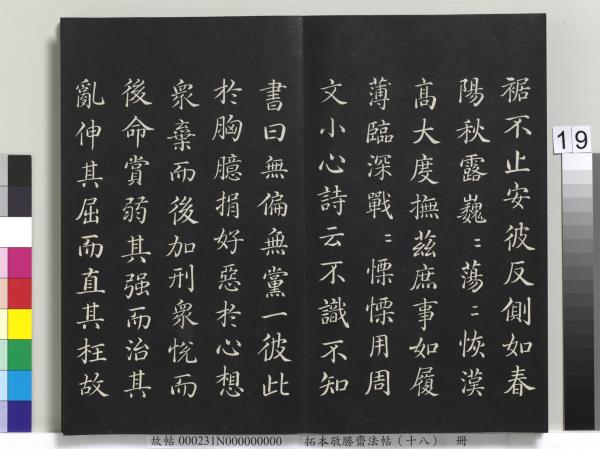 裾不止安彼反側如春
陽秋露巍〻蕩〻恢漢
高大度撫茲庶事如履
薄臨深戰〻慄慄用周
文小心詩云不識不知
書曰無偏無黨一彼此
於胸臆捐好惡於心想
衆棄而後加刑衆悅而
後命賞弱其强而治其
亂伸其屈而直其枉故
19
故帖 000231N000000000 拓本敬勝齋法帖（十八） 冊